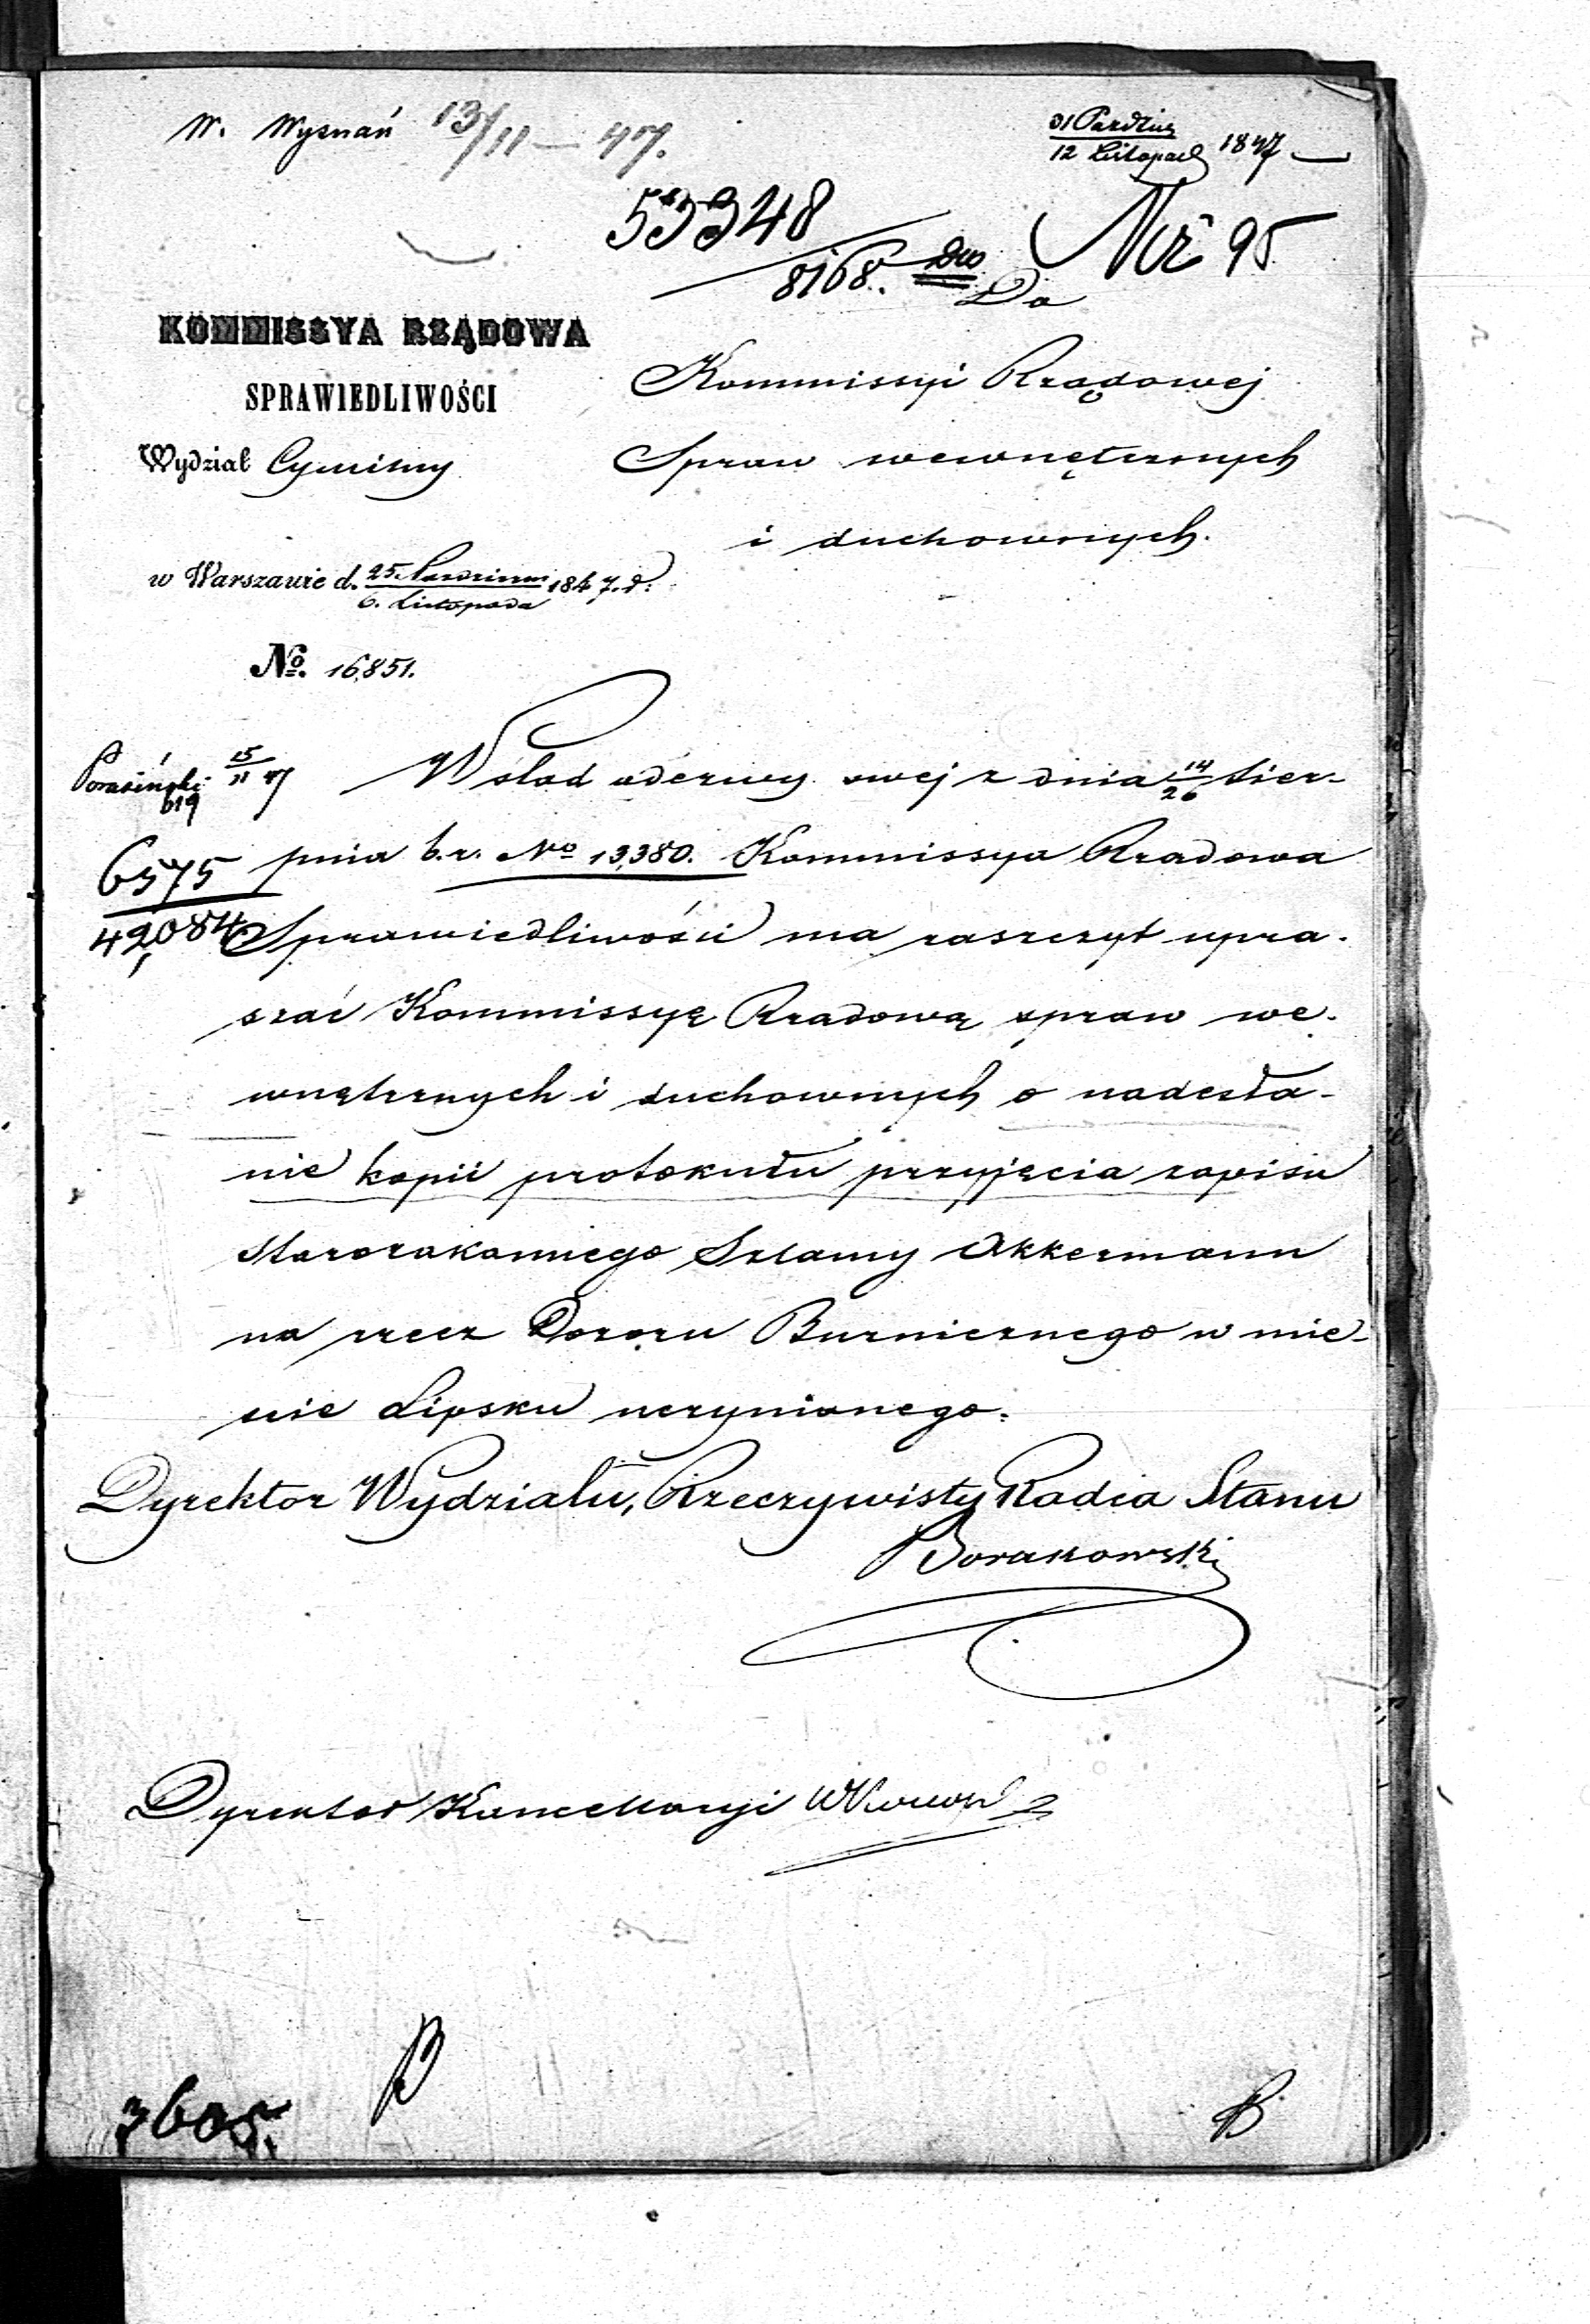 W. Wyznań 13/11 — 47.
31 Paździer
12 Listopad 1847 —
53348
8168.
Nr 95
Do
KOMMISSYA RZĄDOWA
SPRAWIEDLIWOŚCI
Wydział Cywilny
Kommissyi Rządowej
Spraw wewnętrznych
i duchownych.
w Warszawie d. 25. Październ 1847. r.
6. Listopada
No. 16,851.
15
11 47
619
6575
42,084
W ślad odezwy swej z dnia 14/26 Sier-
pnia b.r. No 13,380. Kommissya Rządowa
Sprawiedliwości ma zaszczyt upra-
szać Kommissyę Rządową spraw we-
wnętrznych i duchownych o nadesła-
nie kopii protokułu przyjęcia zapisu
Starozakonnego Szlamy Akkermann
na rzecz Dozoru Bużnicznego w mie-
ście Lipsku uczynionego.
Dyrektor Wydziału, Rzeczywisty Radca Stanu
Borakowski
Dyrektor Kancellaryi
3605.
B